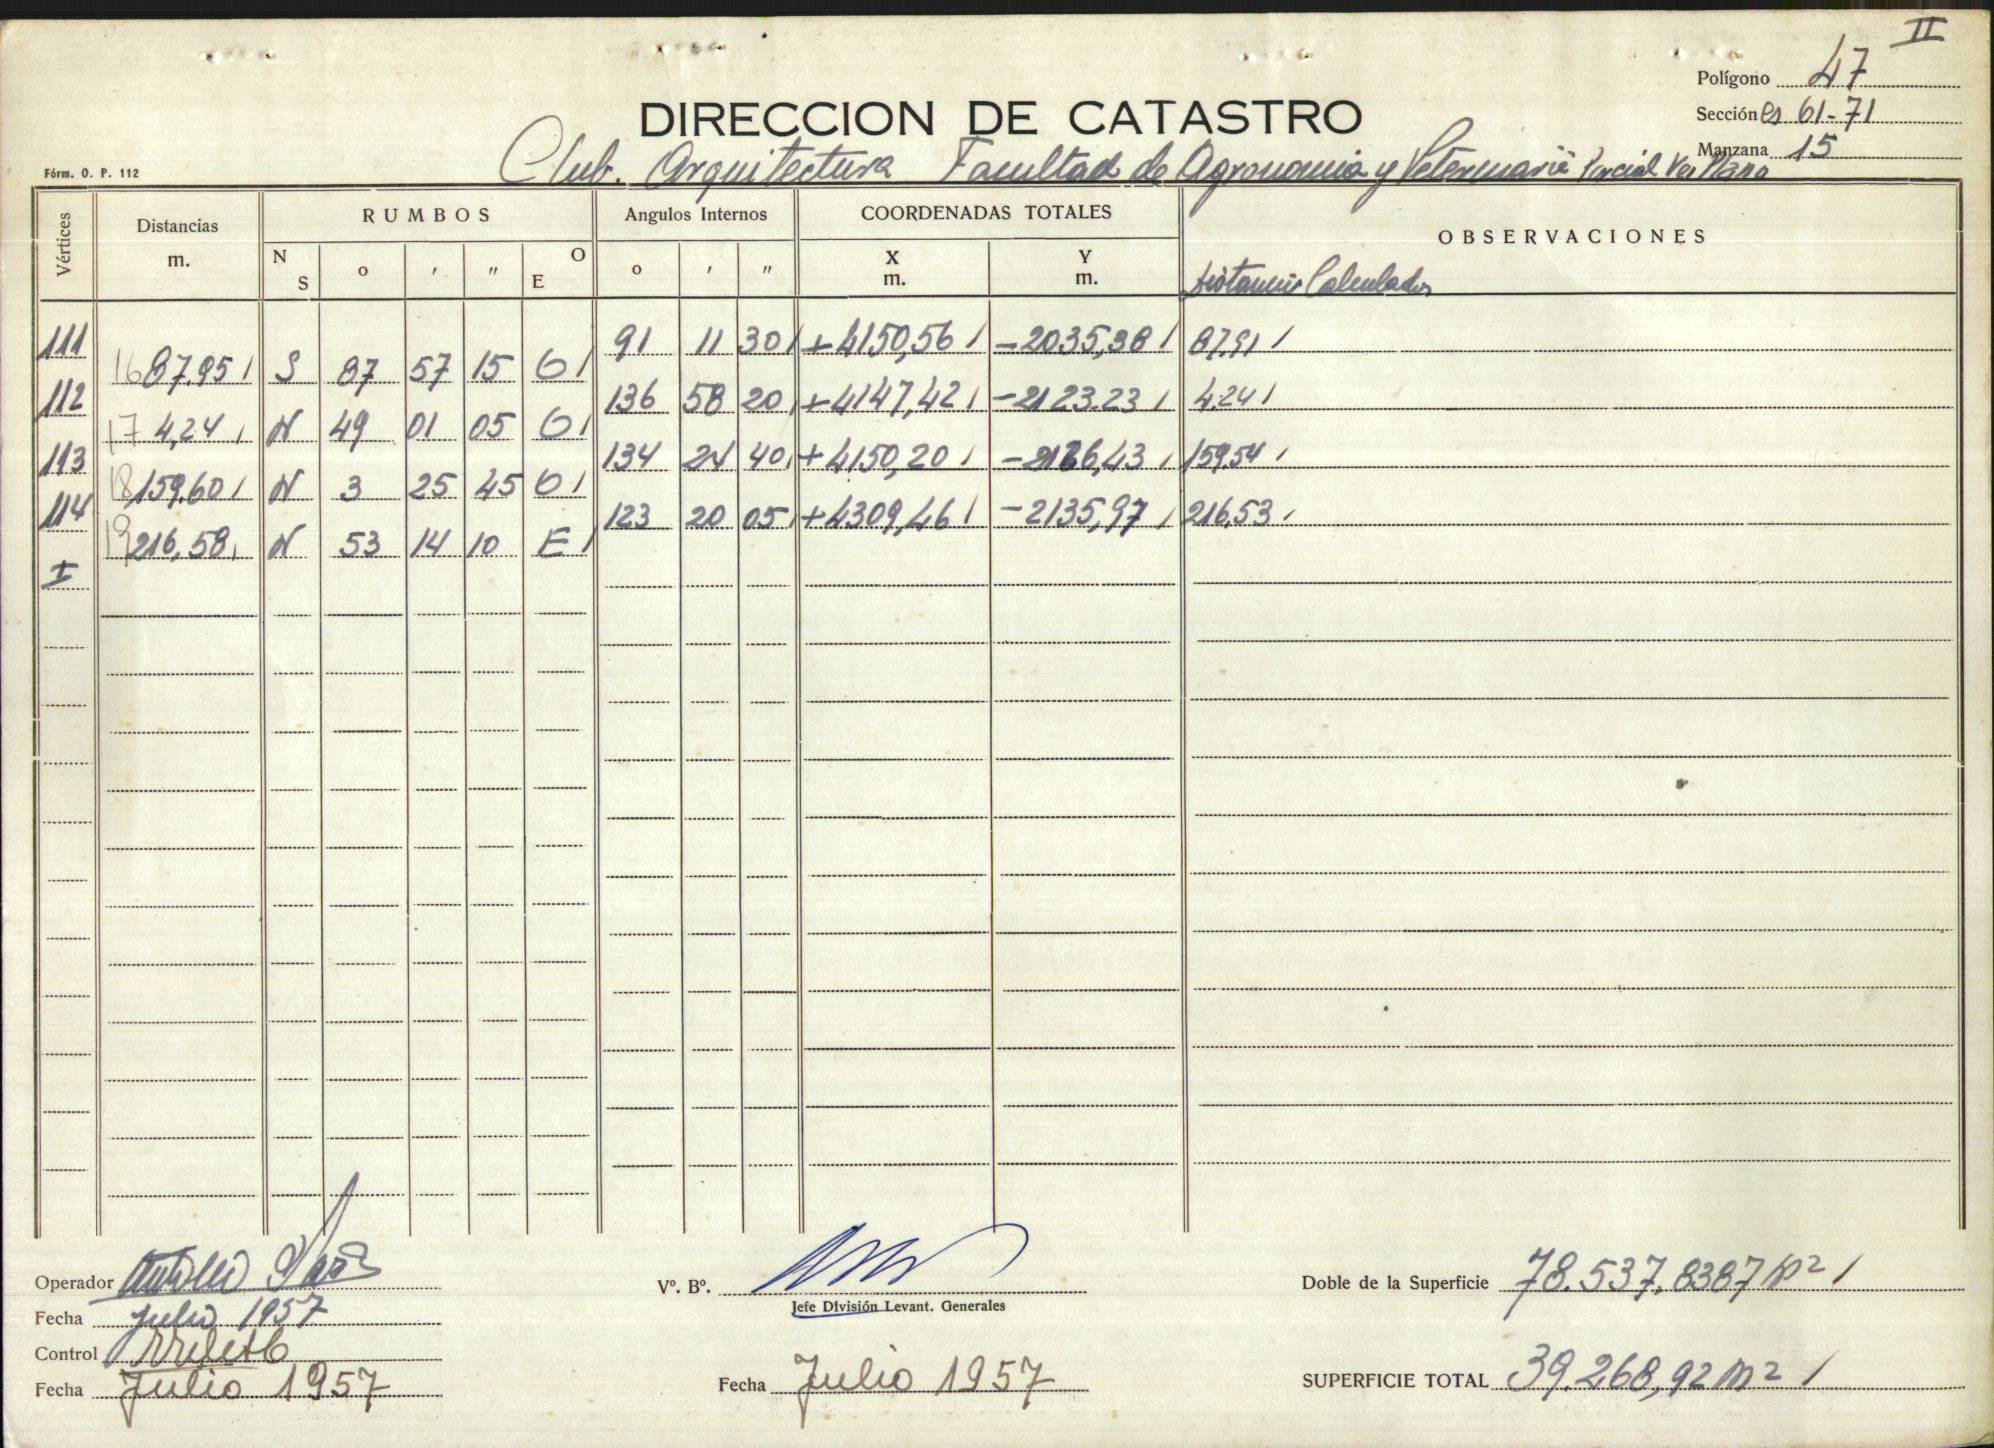 II
Polígono 47
DIRECCION DE CATASTRO
Sección es 61-71
Manzana 15
Club. Arquitectura Facultad de Agronomia y Veterinaria Parcial Ver Plano
Fórm. O. P. 112
Vértices
Distancias m.
RUMBOS
Angulos Internos
COORDENADAS TOTALES
OBSERVACIONES
N S o ′ ″ O E
o ′ ″
X m.
Y m.
Distancias Calculadas
111 91 11 30 +4150,56 -2035,38 87.91
16 87.95 S 87 57 15 O
112 136 58 20 +4147,42 -2123.23 4.24
17 4,24 N 49 01 05 O
113 134 24 40 +4150,20 -2126,43 159.54
18 159.60 N 3 25 45 O
114 123 20 05 +4309,46 -2135,97 216.53
19 216,58 N 53 14 10 E
I
Operador
Fecha Julio 1957
Control
Fecha Julio 1957
Vº. Bº.
Jefe División Levant. Generales
Fecha Julio 1957
Doble de la Superficie 78.537,8387 m2
SUPERFICIE TOTAL 39.268,92 m2